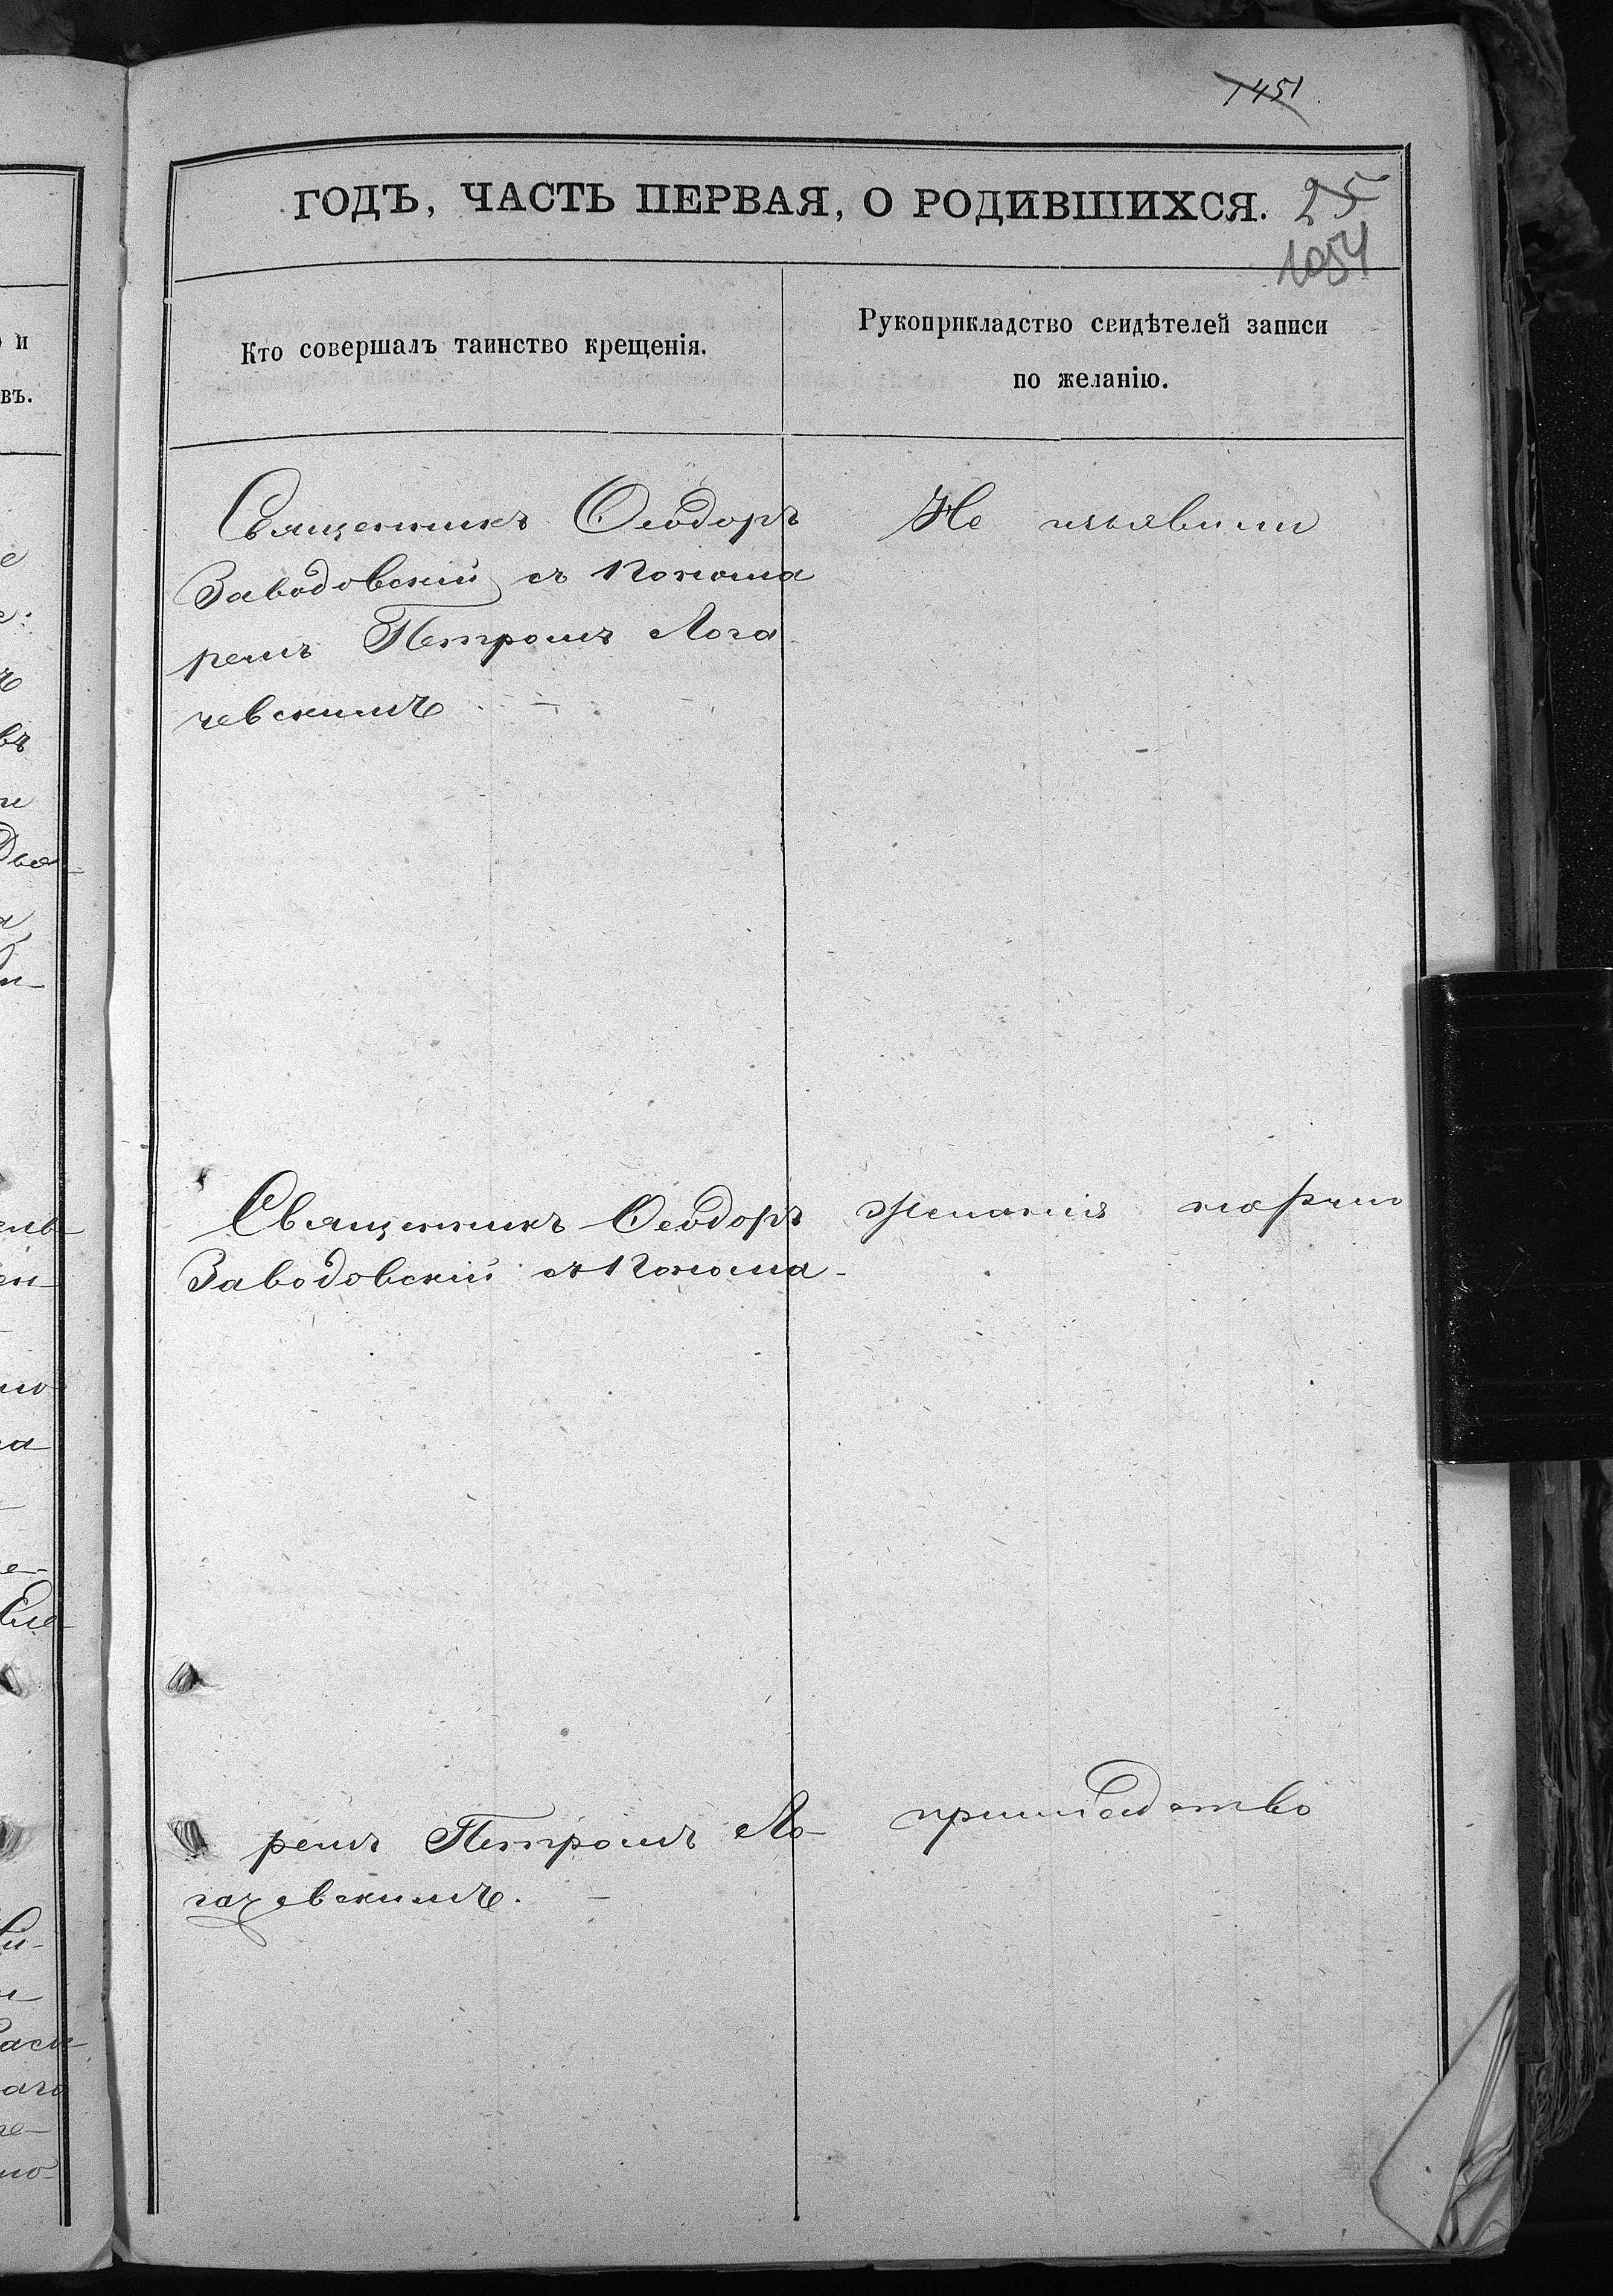 1451
ГОДЪ, ЧАСТЬ ПЕРВАЯ, О РОДИВШИХСЯ.
25
1054
Кто совершалъ таинство крещенія.
Рукоприкладство свидѣтелей записи
по желанію.
Священникъ Ѳеодоръ
Заводовскій съ Понома
ремъ Петромъ Лога
чевскимъ
Не изъявили
Священникъ Ѳеодоръ
Заводовскій съ Понома-
желанія
ремъ Петромъ Ло-
гачевскимъ.
и
въ.